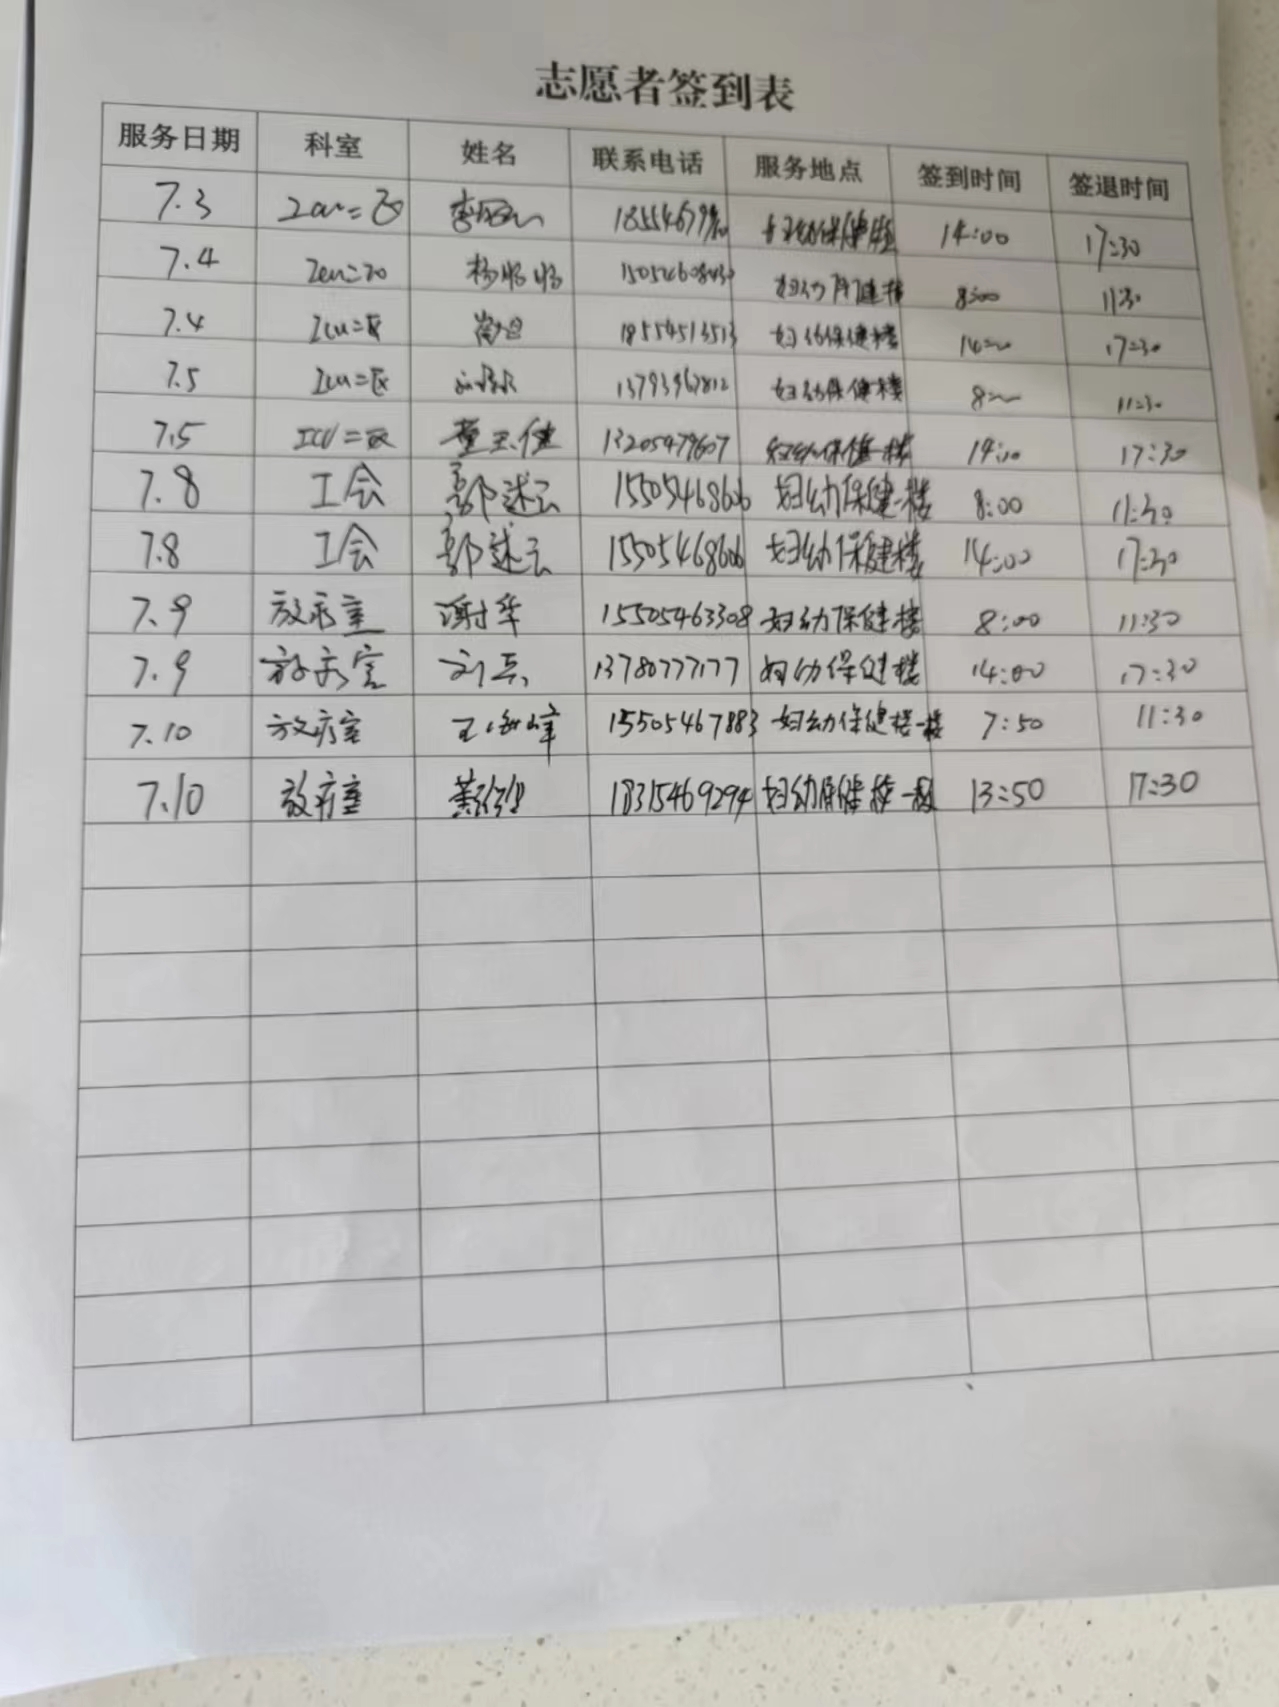 志愿者签到表
服务日期 科室 姓名 联系电话 服务地点 签到时间 签退时间
7.3 Icu=区 14:00 17:30
7.4 Icu=区 杨 8:00 11:30
7.4 Icu=区 18554513513 妇幼保健楼 14:00 17:30
7.5 Icu=区 13793967812 妇幼保健楼 8:00 11:30
7.5 ICU=区 董玉健 13205479607 妇幼保健一楼 14:00 17:30
7.8 工会 郭述云 15505468606 妇幼保健一楼 8:00 11:30
7.8 工会 郭述云 15505468606 妇幼保健楼 14:00 17:30
7.9 放疗室 谢华 15505463308 妇幼保健楼 8:00 11:30
7.9 放疗室 刘兵 13780777177 妇幼保健楼 14:00 17:30
7.10 放疗室 王海峰 15505467883 妇幼保健楼一楼 7:50 11:30
7.10 放疗室 18315469294 妇幼保健楼一楼 13:50 17:30